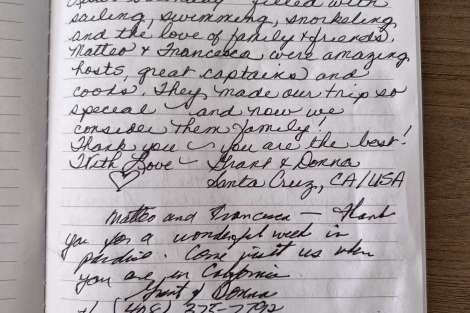 filled with
sailing, swimming, snorkeling
and the love of family & friends.
Matteo & Francesca were amazing
hosts, great captains and
cooks. They made our trip so
special – and now we
consider them family!
Thank you – you are the best!
With Love – Grant & Donna
Santa Cruz, CA/USA
Matteo and Francesca — Thank
you for a wonderful week in
paradise. Come visit us when
you are in California
Grant & Donna